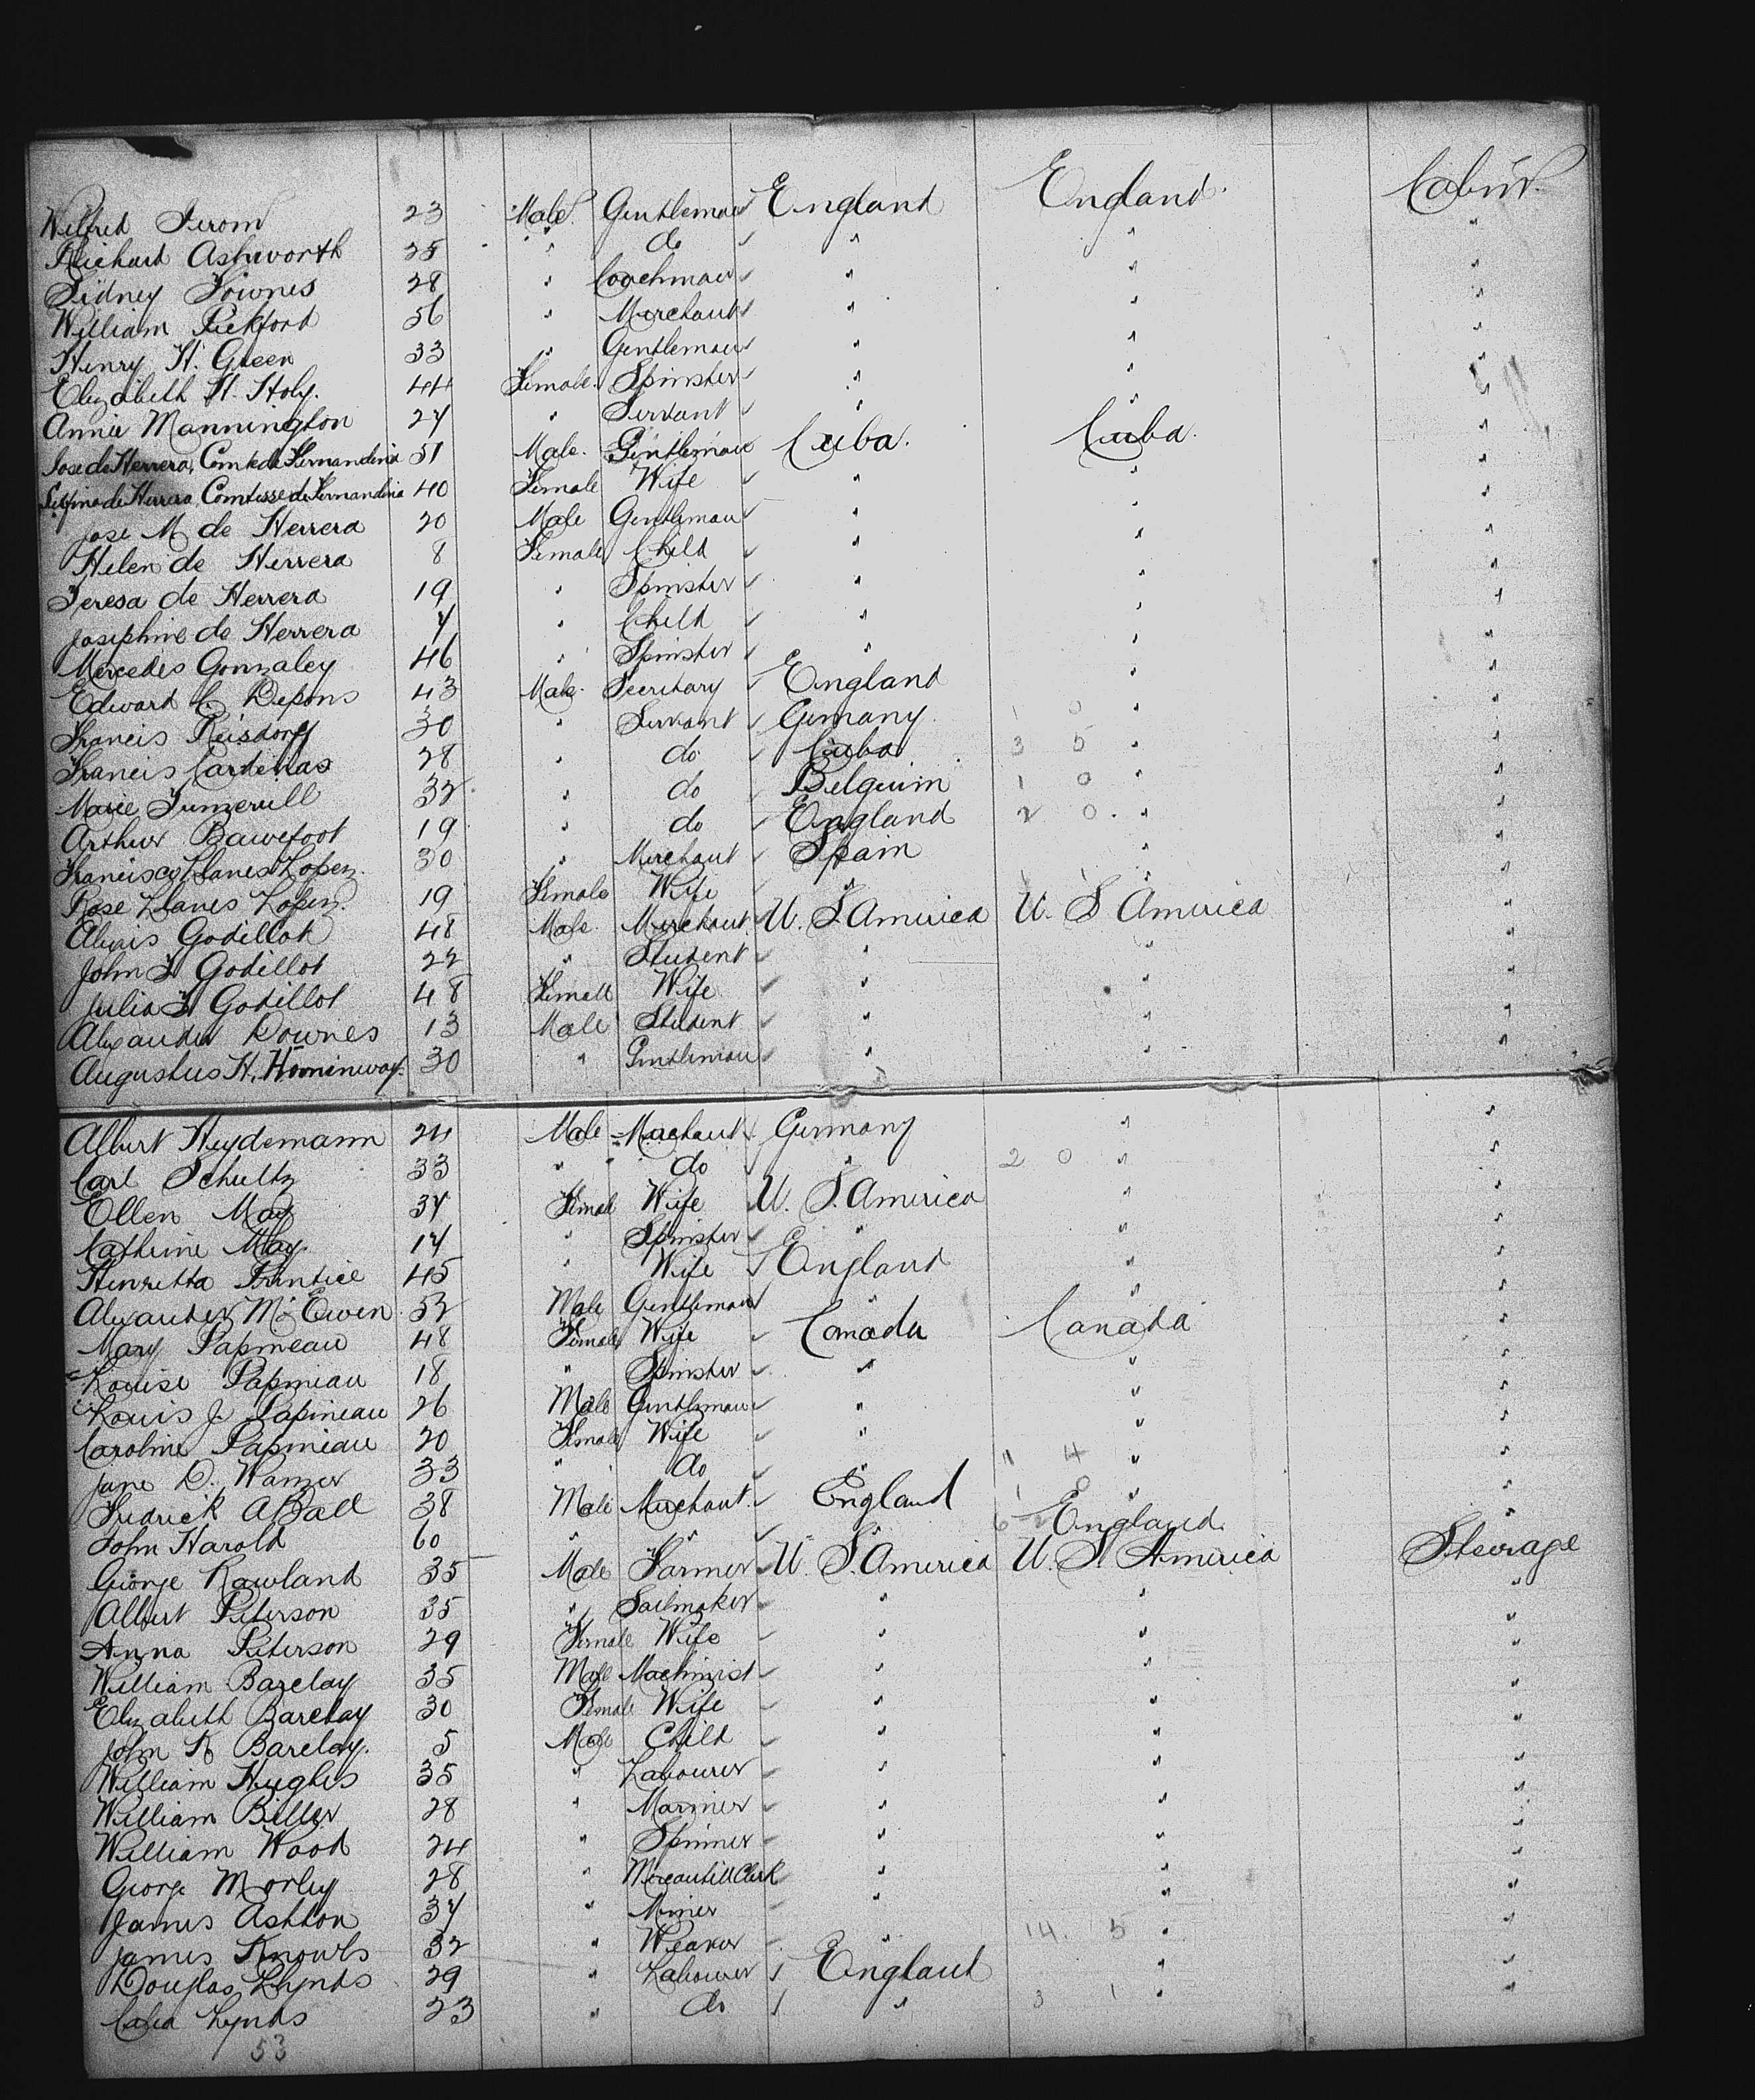 Wilfred Jerom 23 Male. Gentleman England England. Cabin.
Richard Ashworth 25 " do " " "
Sidney Townes 28 " Coachman " " "
William Pickford 56 " Merchant " " "
Henry H. Green 33 " Gentleman " " "
Elizabeth H. Holy. 44 Female. Spinster " " "
Annie Mannington 27 " Servant " " "
Jose de Herrera, Comte de Fernandina 51 Male. Gentleman Cuba. Cuba. "
de Herrera Comtesse de Fernandina 40 Female Wife " " "
Jose M de Herrera 20 Male Gentleman " " "
Helen de Herrera 8 Female Child " " "
Teresa de Herrera 19 " Spinster " " "
Josephine de Herrera 7 " Child " " "
Mercedes Gonzaley 46 " Spinster " " "
Edward C. Depons 43 Male. Secretary England " "
Francis Reisdorff 30 " Servant Germany. 1 0 " "
Francis Cardenas 28 " do Cuba. 3 5 " "
Marie 32 " do Belguim 1 0 " "
Arthur Bawefoot 19 " do England 2 0. " "
Francisco Llanes Lopez. 30 " Merchant Spain " "
Rose Llanes Lopez. 19 Female Wife " " "
Alexis Godillot 48 Male. Merchant. U. S. America U. S America "
John F Godillot 22 " Student " " "
Julia F Godillot 48 Female Wife " " "
Alexander Downes 13 Male Student " " "
Augustus H. Hominway. 30 " Gentleman " " "
Albert Heydemann 24 Male Merchant Germany " "
Carl Schultz 33 " do " 2 0 " "
Ellen May 37 Female Wife U. S. America " "
Catherine May. 17 " Spinster " " "
Henrietta Prentice 45 " Wife England " "
Alexander McEwen. 52 Male Gentleman " " "
Mary Papineau 48 Female Wife Canada Canada "
Louise Papineau 18 " Spinster " " "
Louis J. Papineau 26 Male Gentleman " " "
Caroline Papineau 20 Female Wife " " "
Jane D. Wanzer 33 " do " 1 4 " "
Fredrick A Ball 38 Male Merchant. England 1 0 " "
John Harold 60 " " " 6 2 England. "
George Rowland 35 Male Farmer U. S. America U. S. America Steerage
Albert Peterson 35 " Sailmaker " " "
Anna Peterson 29 Female Wife " " "
William Barclay 35 Male Machinist " " "
Elizabeth Barclay 30 Female Wife " " "
John K Barclay. 5 Male Child " " "
William Hughes 35 " Labourer " " "
William Biller 28 " Mariner " " "
William Wood 24 " Spinner " " "
George Morley 28 " Mercantill Clerk " " "
James Ashton 37 " Miner " " "
James Knowls 32 " Weaver " 14. 5 " "
Douglas Lynds 29 " Labourer England " "
Lynds 23 " do " 3 1 " "
53